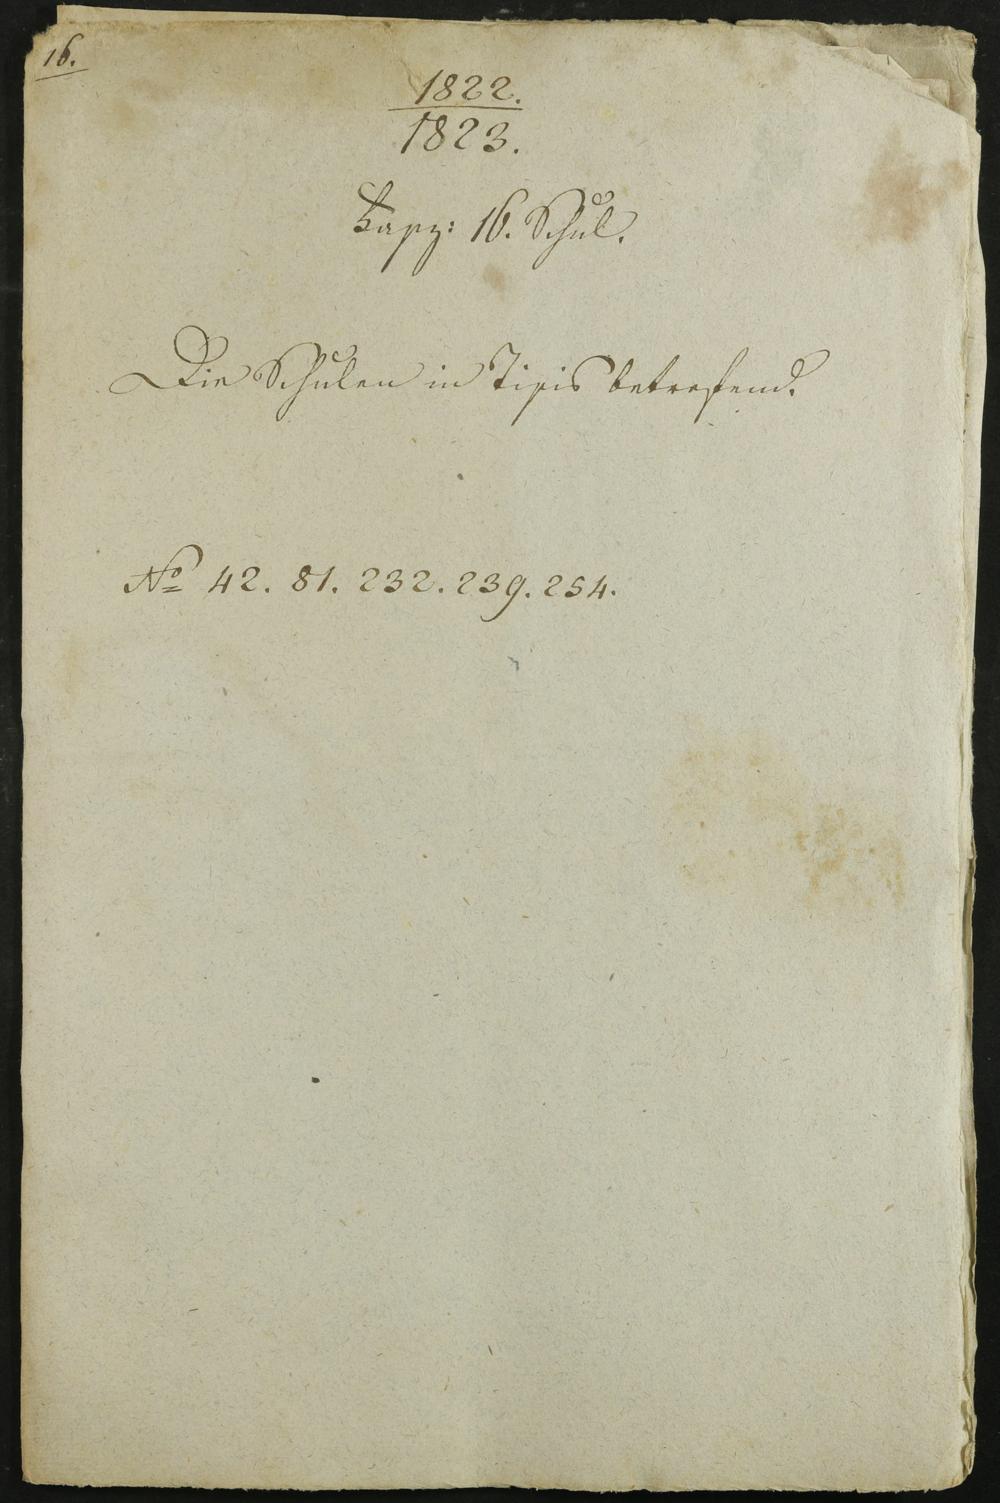 16.
1822.
1823.
16. Schul.
Die Schulen in Tisis betreffend.
No 42. 81. 232. 239. 254.